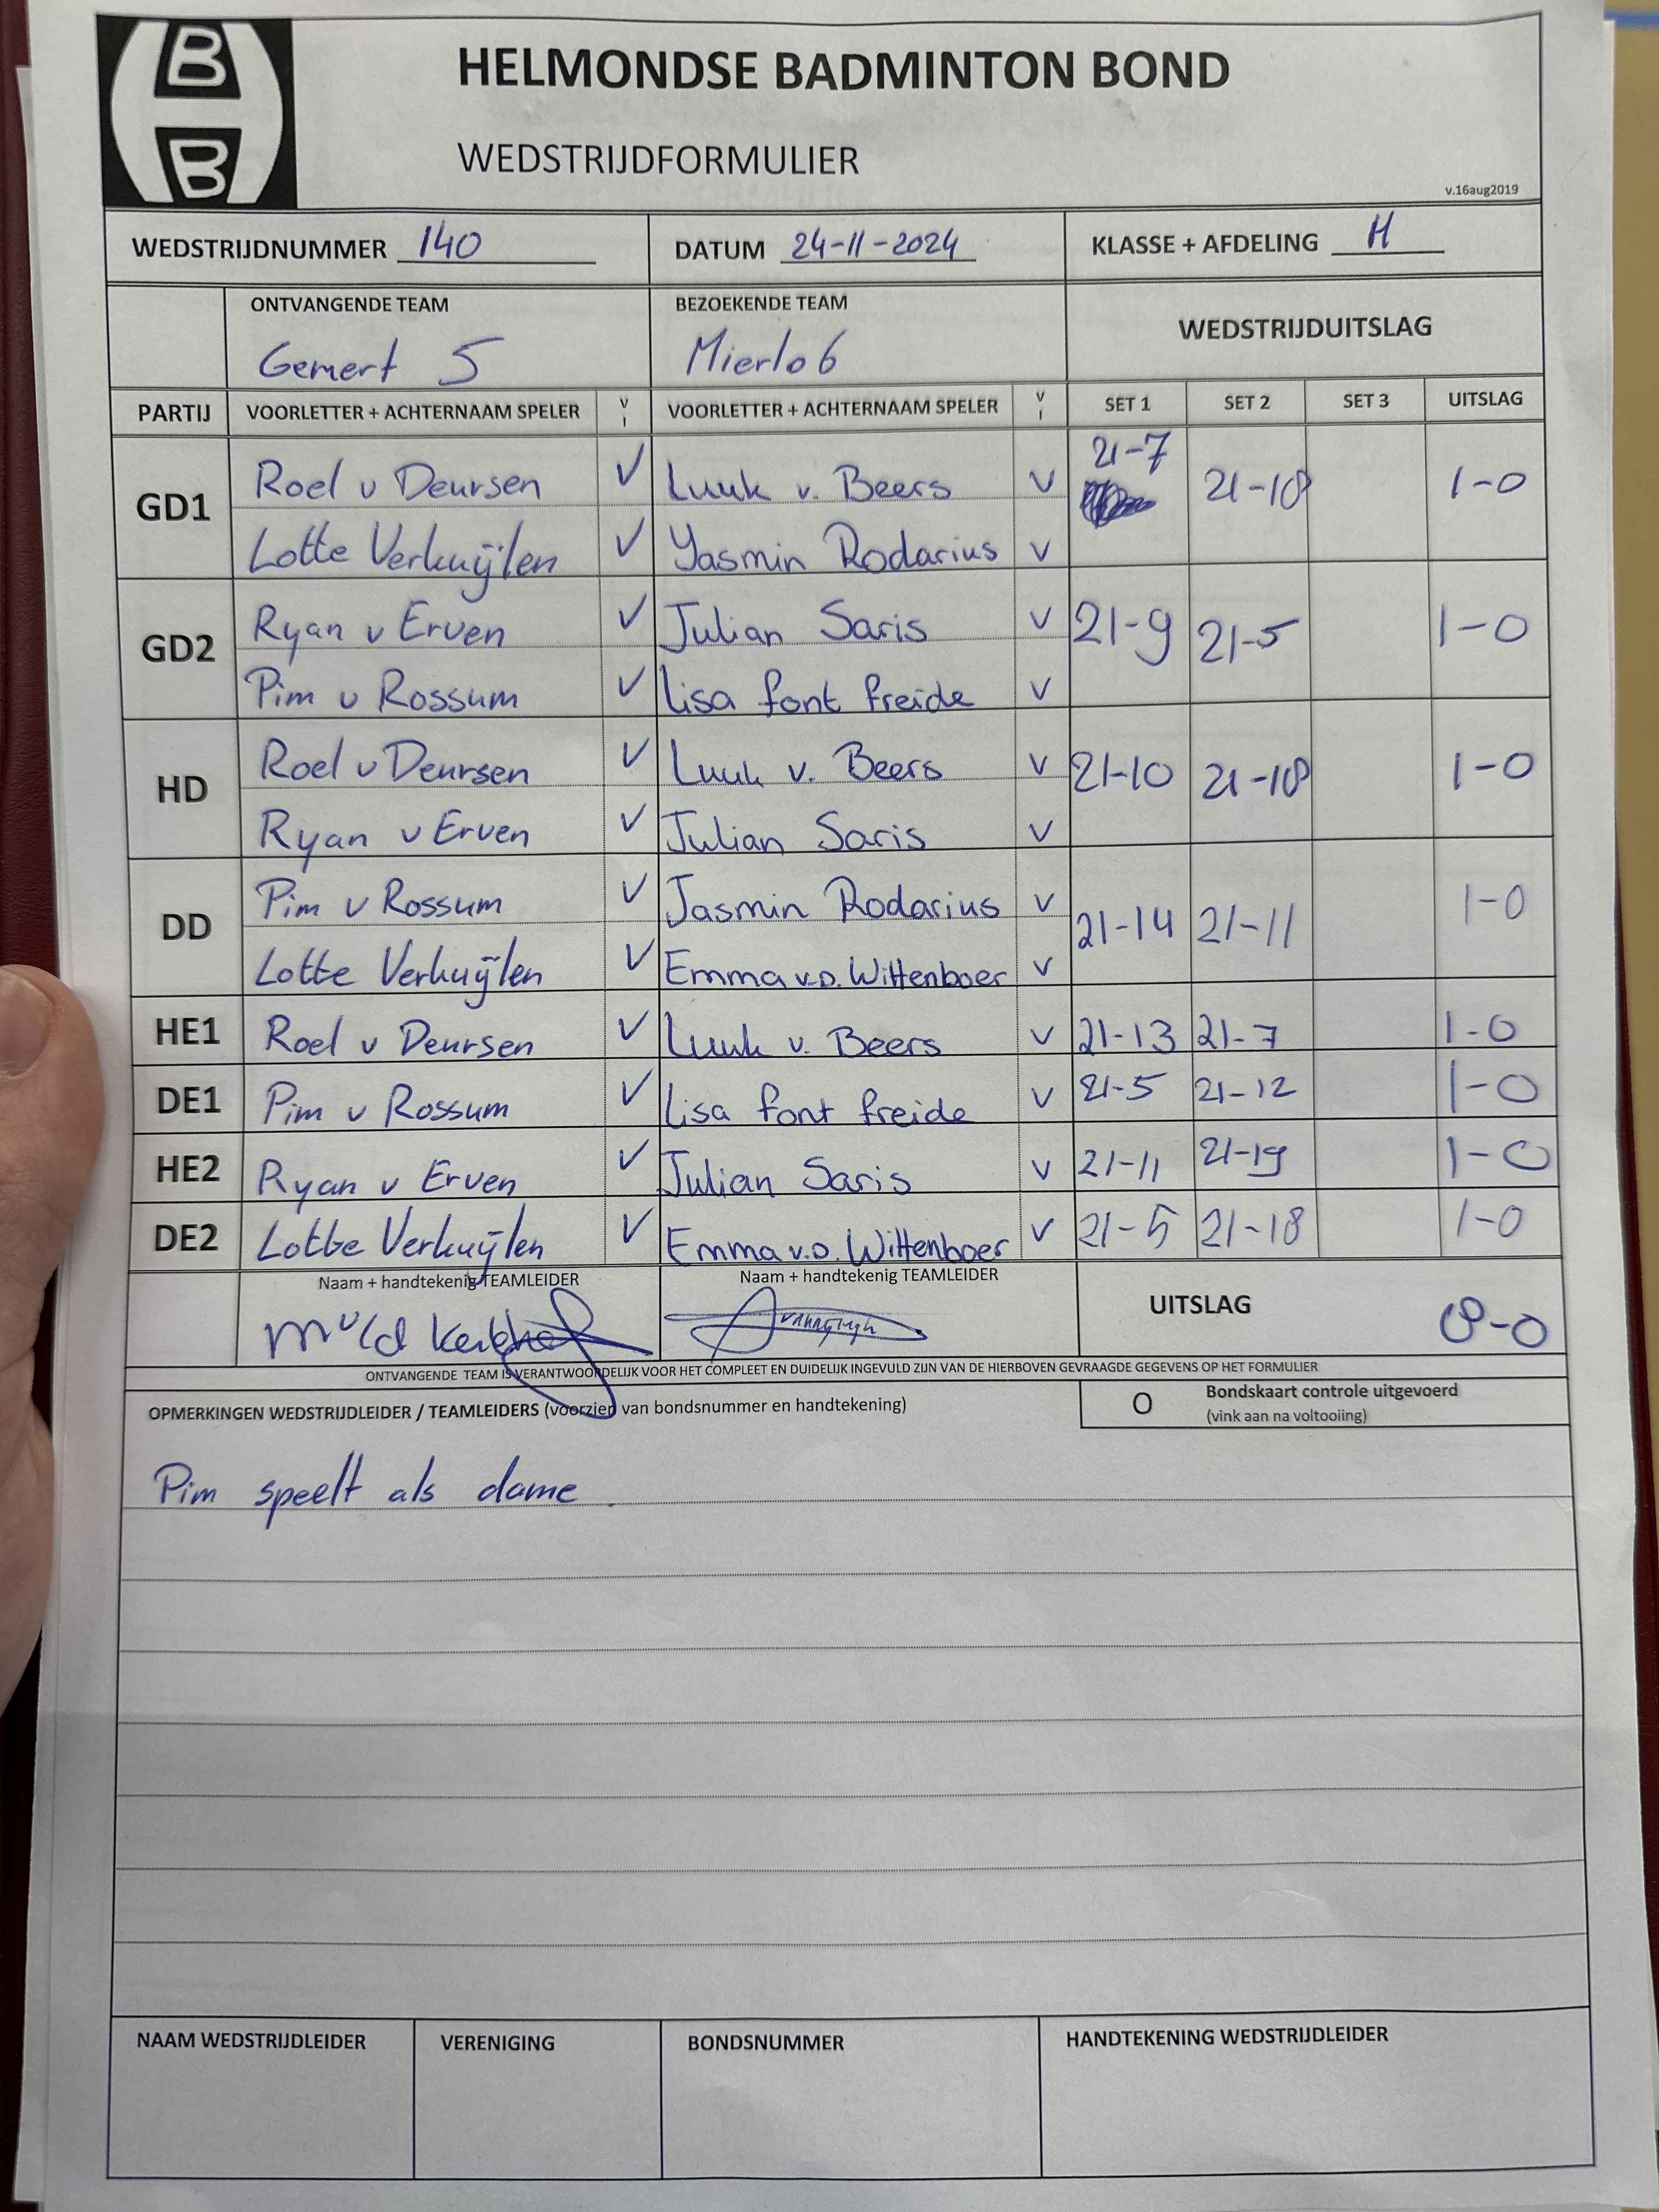 B
B
HELMONDSE BADMINTON BOND
WEDSTRIJDFORMULIER
v.16aug2019
WEDSTRIJDNUMMER 140 DATUM 24-11-2024 KLASSE + AFDELING H
ONTVANGENDE TEAM BEZOEKENDE TEAM WEDSTRIJDUITSLAG
Gemert 5 Mierlo 6
PARTIJ VOORLETTER + ACHTERNAAM SPELER V I VOORLETTER + ACHTERNAAM SPELER V I SET 1 SET 2 SET 3 UITSLAG
GD1 Roel v Deursen V Luuk v. Beers V 21-7 21-18 1-0
Lotte Verkuijlen V Yasmin Rodarius V
GD2 Ryan v Erven V Julian Saris V 21-9 21-5 1-0
Pim v Rossum V Lisa font freide V
HD Roel v Deursen V Luuk v. Beers V 21-10 21-18 1-0
Ryan v Erven V Julian Saris V
DD Pim v Rossum V Jasmin Rodarius V 21-14 21-11 1-0
Lotte Verkuijlen V Emma v.d. Wittenboer V
HE1 Roel v Deursen V Luuk v. Beers V 21-13 21-7 1-0
DE1 Pim v Rossum V Lisa font freide V 21-5 21-12 1-0
HE2 Ryan v Erven V Julian Saris V 21-11 21-19 1-0
DE2 Lotte Verkuijlen V Emma v.d. Wittenboer V 21-5 21-18 1-0
Naam + handtekenig TEAMLEIDER Naam + handtekenig TEAMLEIDER UITSLAG 8-0
M v/d Kerkhof
ONTVANGENDE TEAM IS VERANTWOORDELIJK VOOR HET COMPLEET EN DUIDELIJK INGEVULD ZIJN VAN DE HIERBOVEN GEVRAAGDE GEGEVENS OP HET FORMULIER
OPMERKINGEN WEDSTRIJDLEIDER / TEAMLEIDERS (voorzien van bondsnummer en handtekening) O Bondskaart controle uitgevoerd
(vink aan na voltooiing)
Pim speelt als dame.
NAAM WEDSTRIJDLEIDER VERENIGING BONDSNUMMER HANDTEKENING WEDSTRIJDLEIDER